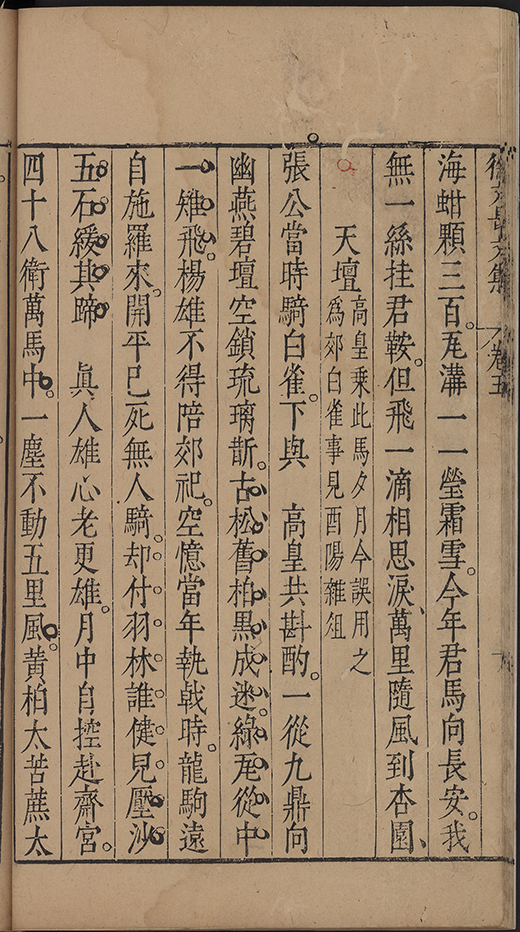 徐文長文集 卷五
海蚶顆三百。瓦溝一一瑩霜雪。今年君馬向長安。我
無一絲挂君鞍。但飛一滴相思淚、萬里隨風到杏園、
天壇 高皇乘此馬夕月今誤用之
爲郊白雀事見酉陽雜俎
張公當時騎白雀。下與 高皇共斟酌。一從九鼎向
幽燕碧壇空鎖琉璃㪿。古松舊柏黑成迷。綠瓦從中
一雉飛。楊雄不得陪郊祀。空憶當年執戟時。龍駒遠
自施羅來。開平已死無人騎。却付羽林誰健兒壓沙
五石緩其蹄 眞人雄心老更雄。月中自控赴齋宮。
四十八衛萬馬中。一塵不動五里風。黃柏太苦蔗太